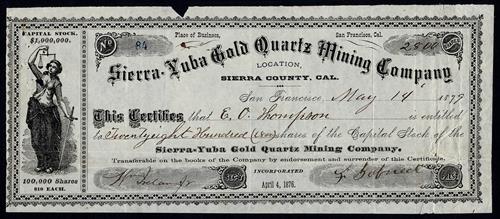 CAPITAL STOCK.
$1,000,000.
No 84
Place of Business,
San Francisco, Cal.
2800
Sierra-Yuba Gold Quartz Mining Company
LOCATION,
SIERRA COUNTY, CAL.
San Francisco, May 14 1879
This Certifies that E. O. Thompson is entitled
to Twenty eight Hundred (2800) shares of the Capital Stock of the
Sierra-Yuba Gold Quartz Mining Company.
Transferable on the books of the Company by endorsement and surrender of this Certificate.
INCORPORATED
April 4, 1876.
100,000 Shares
$10 EACH.